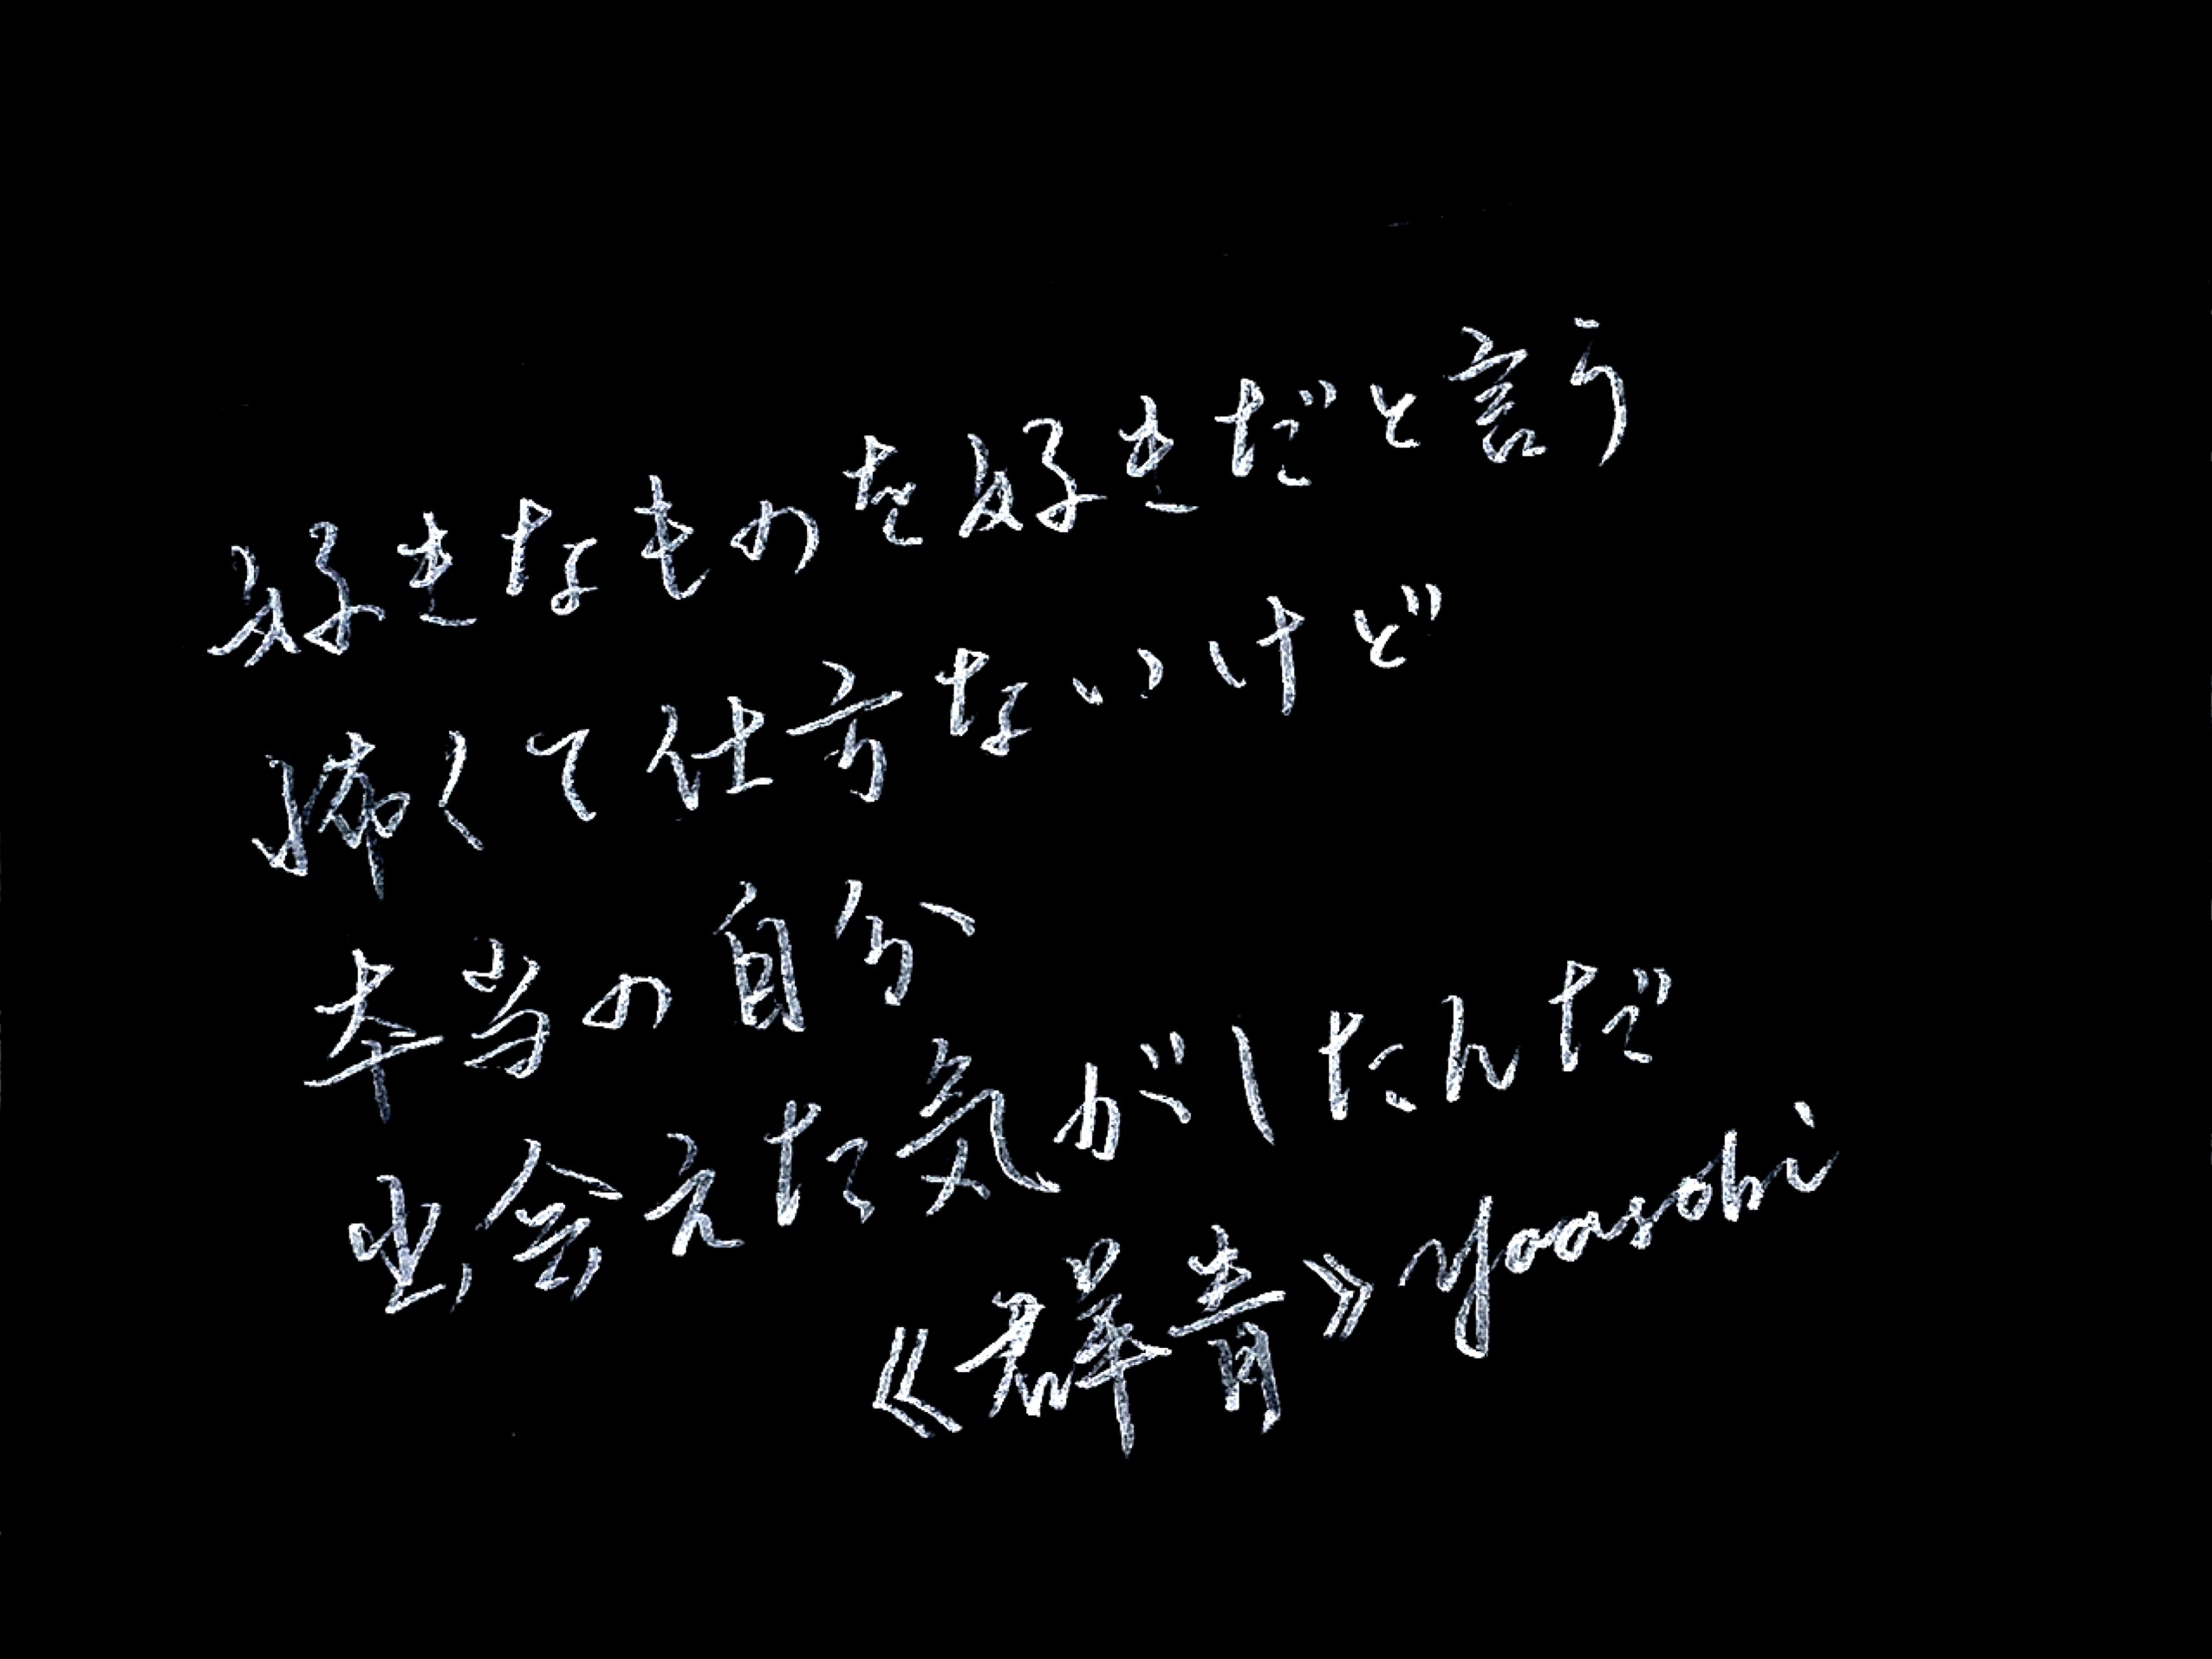 好きなものを好きだと言う
怖くて仕方ないけど
本当の自分
出会えた気がしたんだ
《群青》Yoasobi